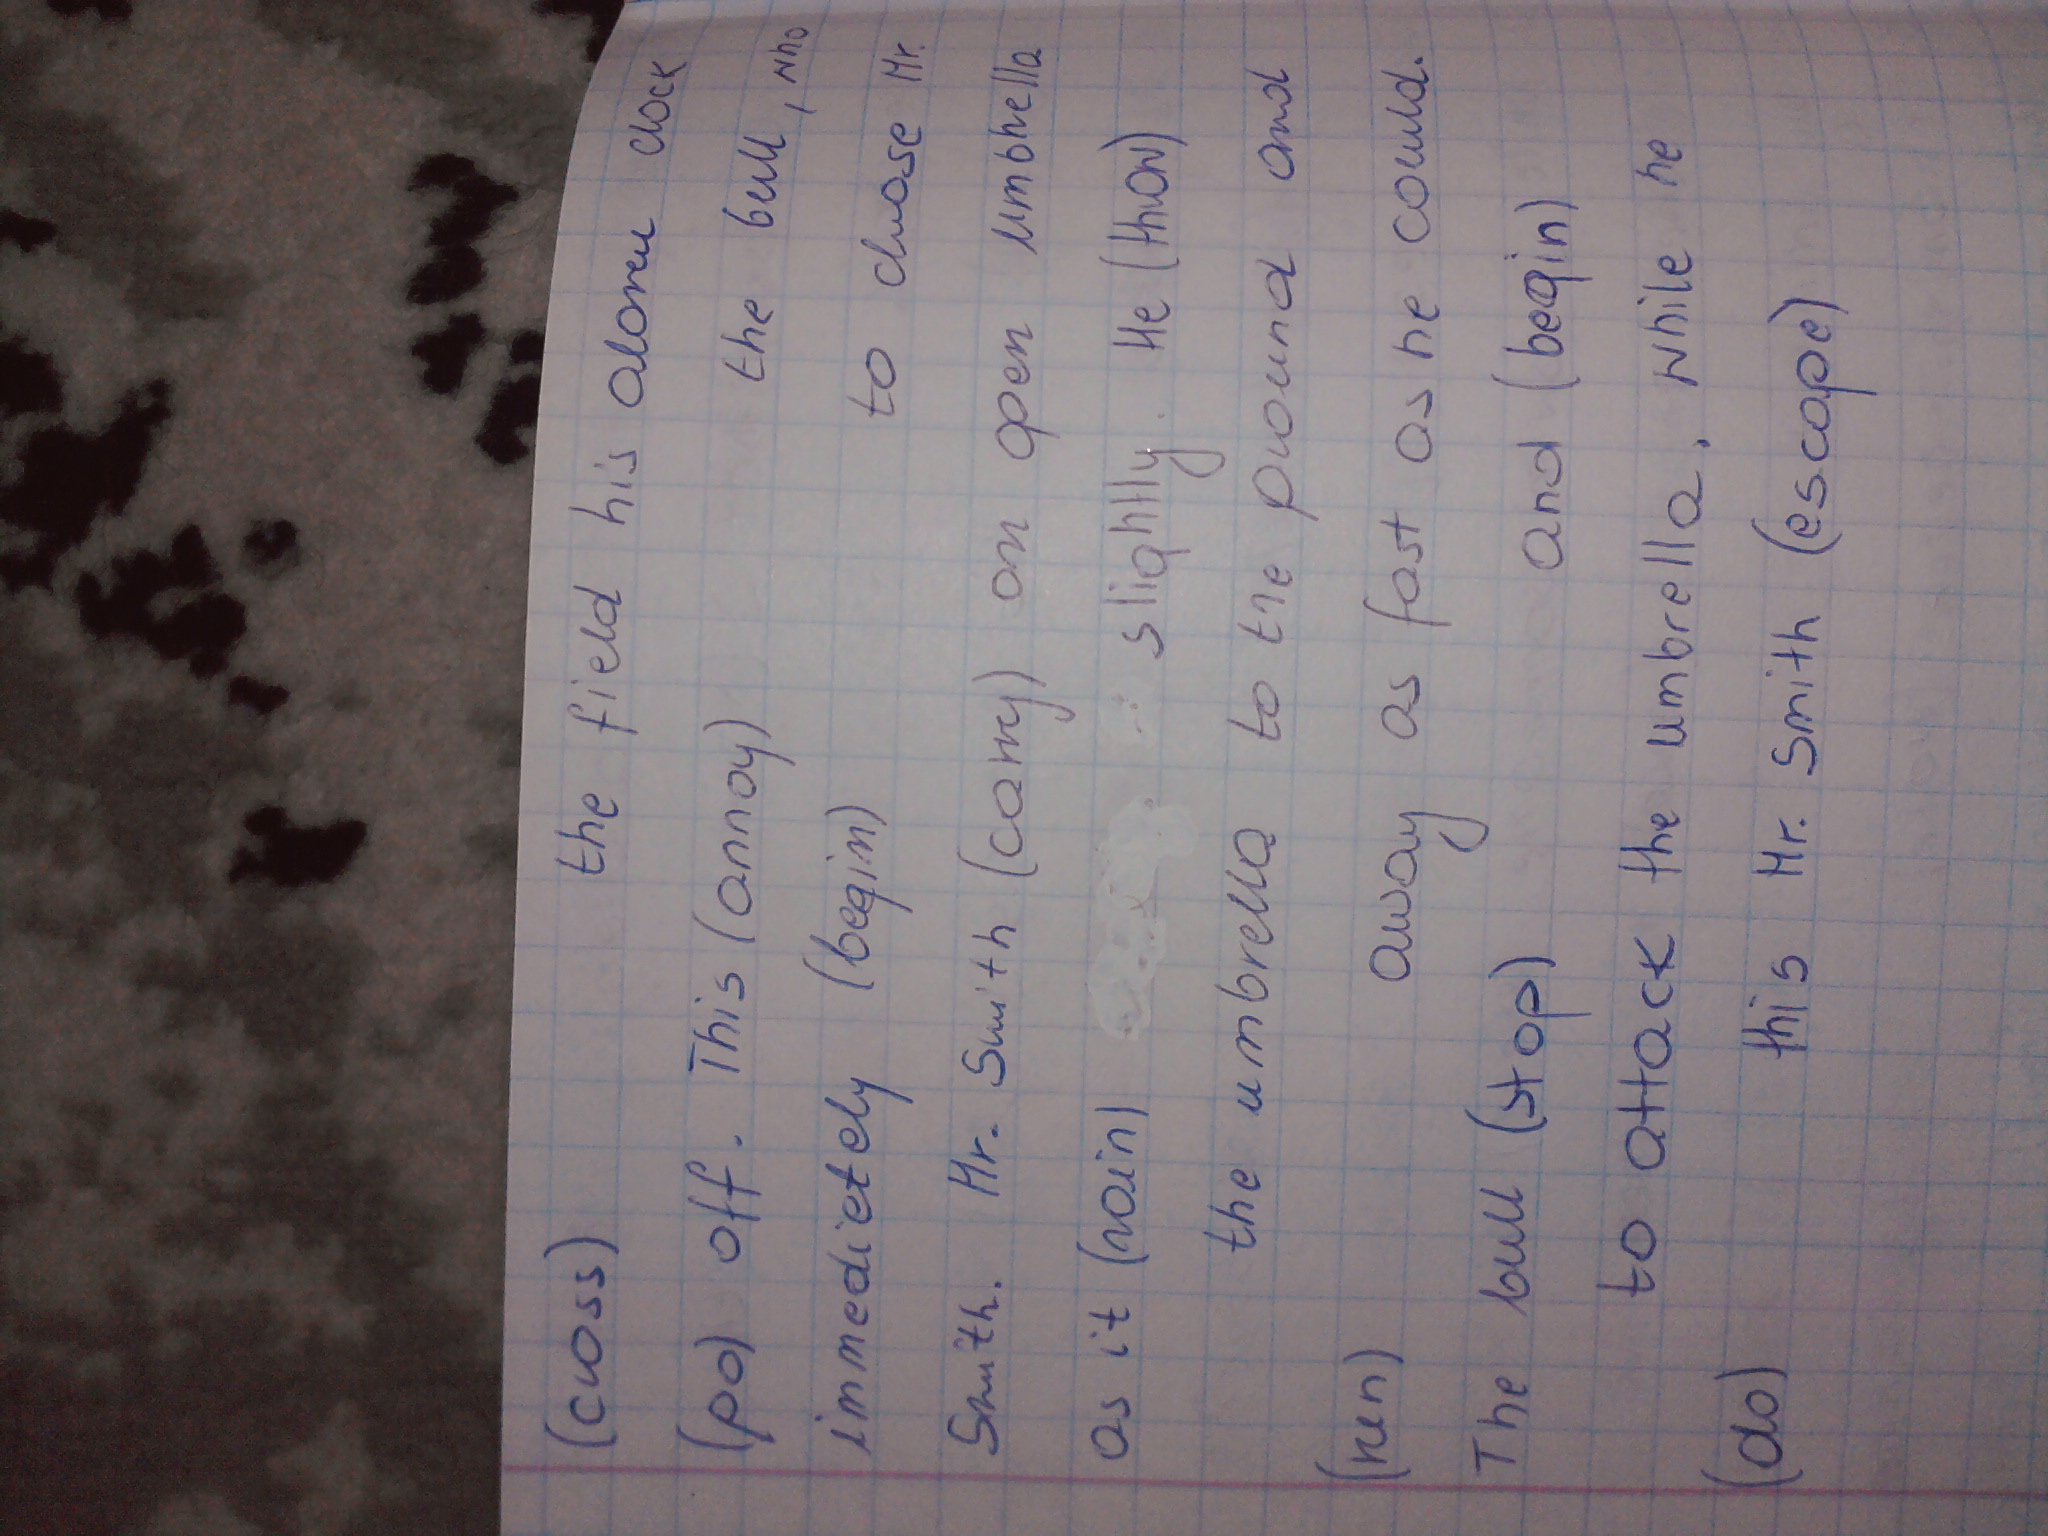 (cross) the field his alarm clock
(go) off. This (annoy) the bull, who
immedietely (begin) to chase Mr.
Smith. Mr. Smith (carry) an open umbrella
as it (rain) slightly. He (throw)
the umbrella to the ground and
(run) away as fast as he could.
The bull (stop) and (begin)
to attack the umbrella, while he
(do) this Mr. Smith (escape)